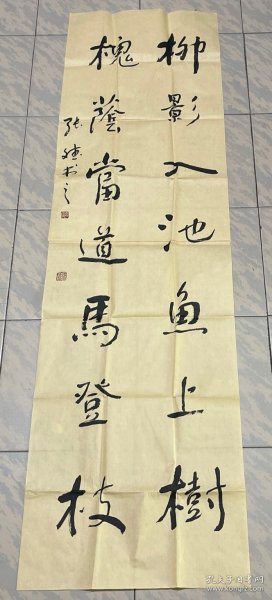 柳影入池魚上樹
槐蔭當道馬登枝
孔夫子旧书网